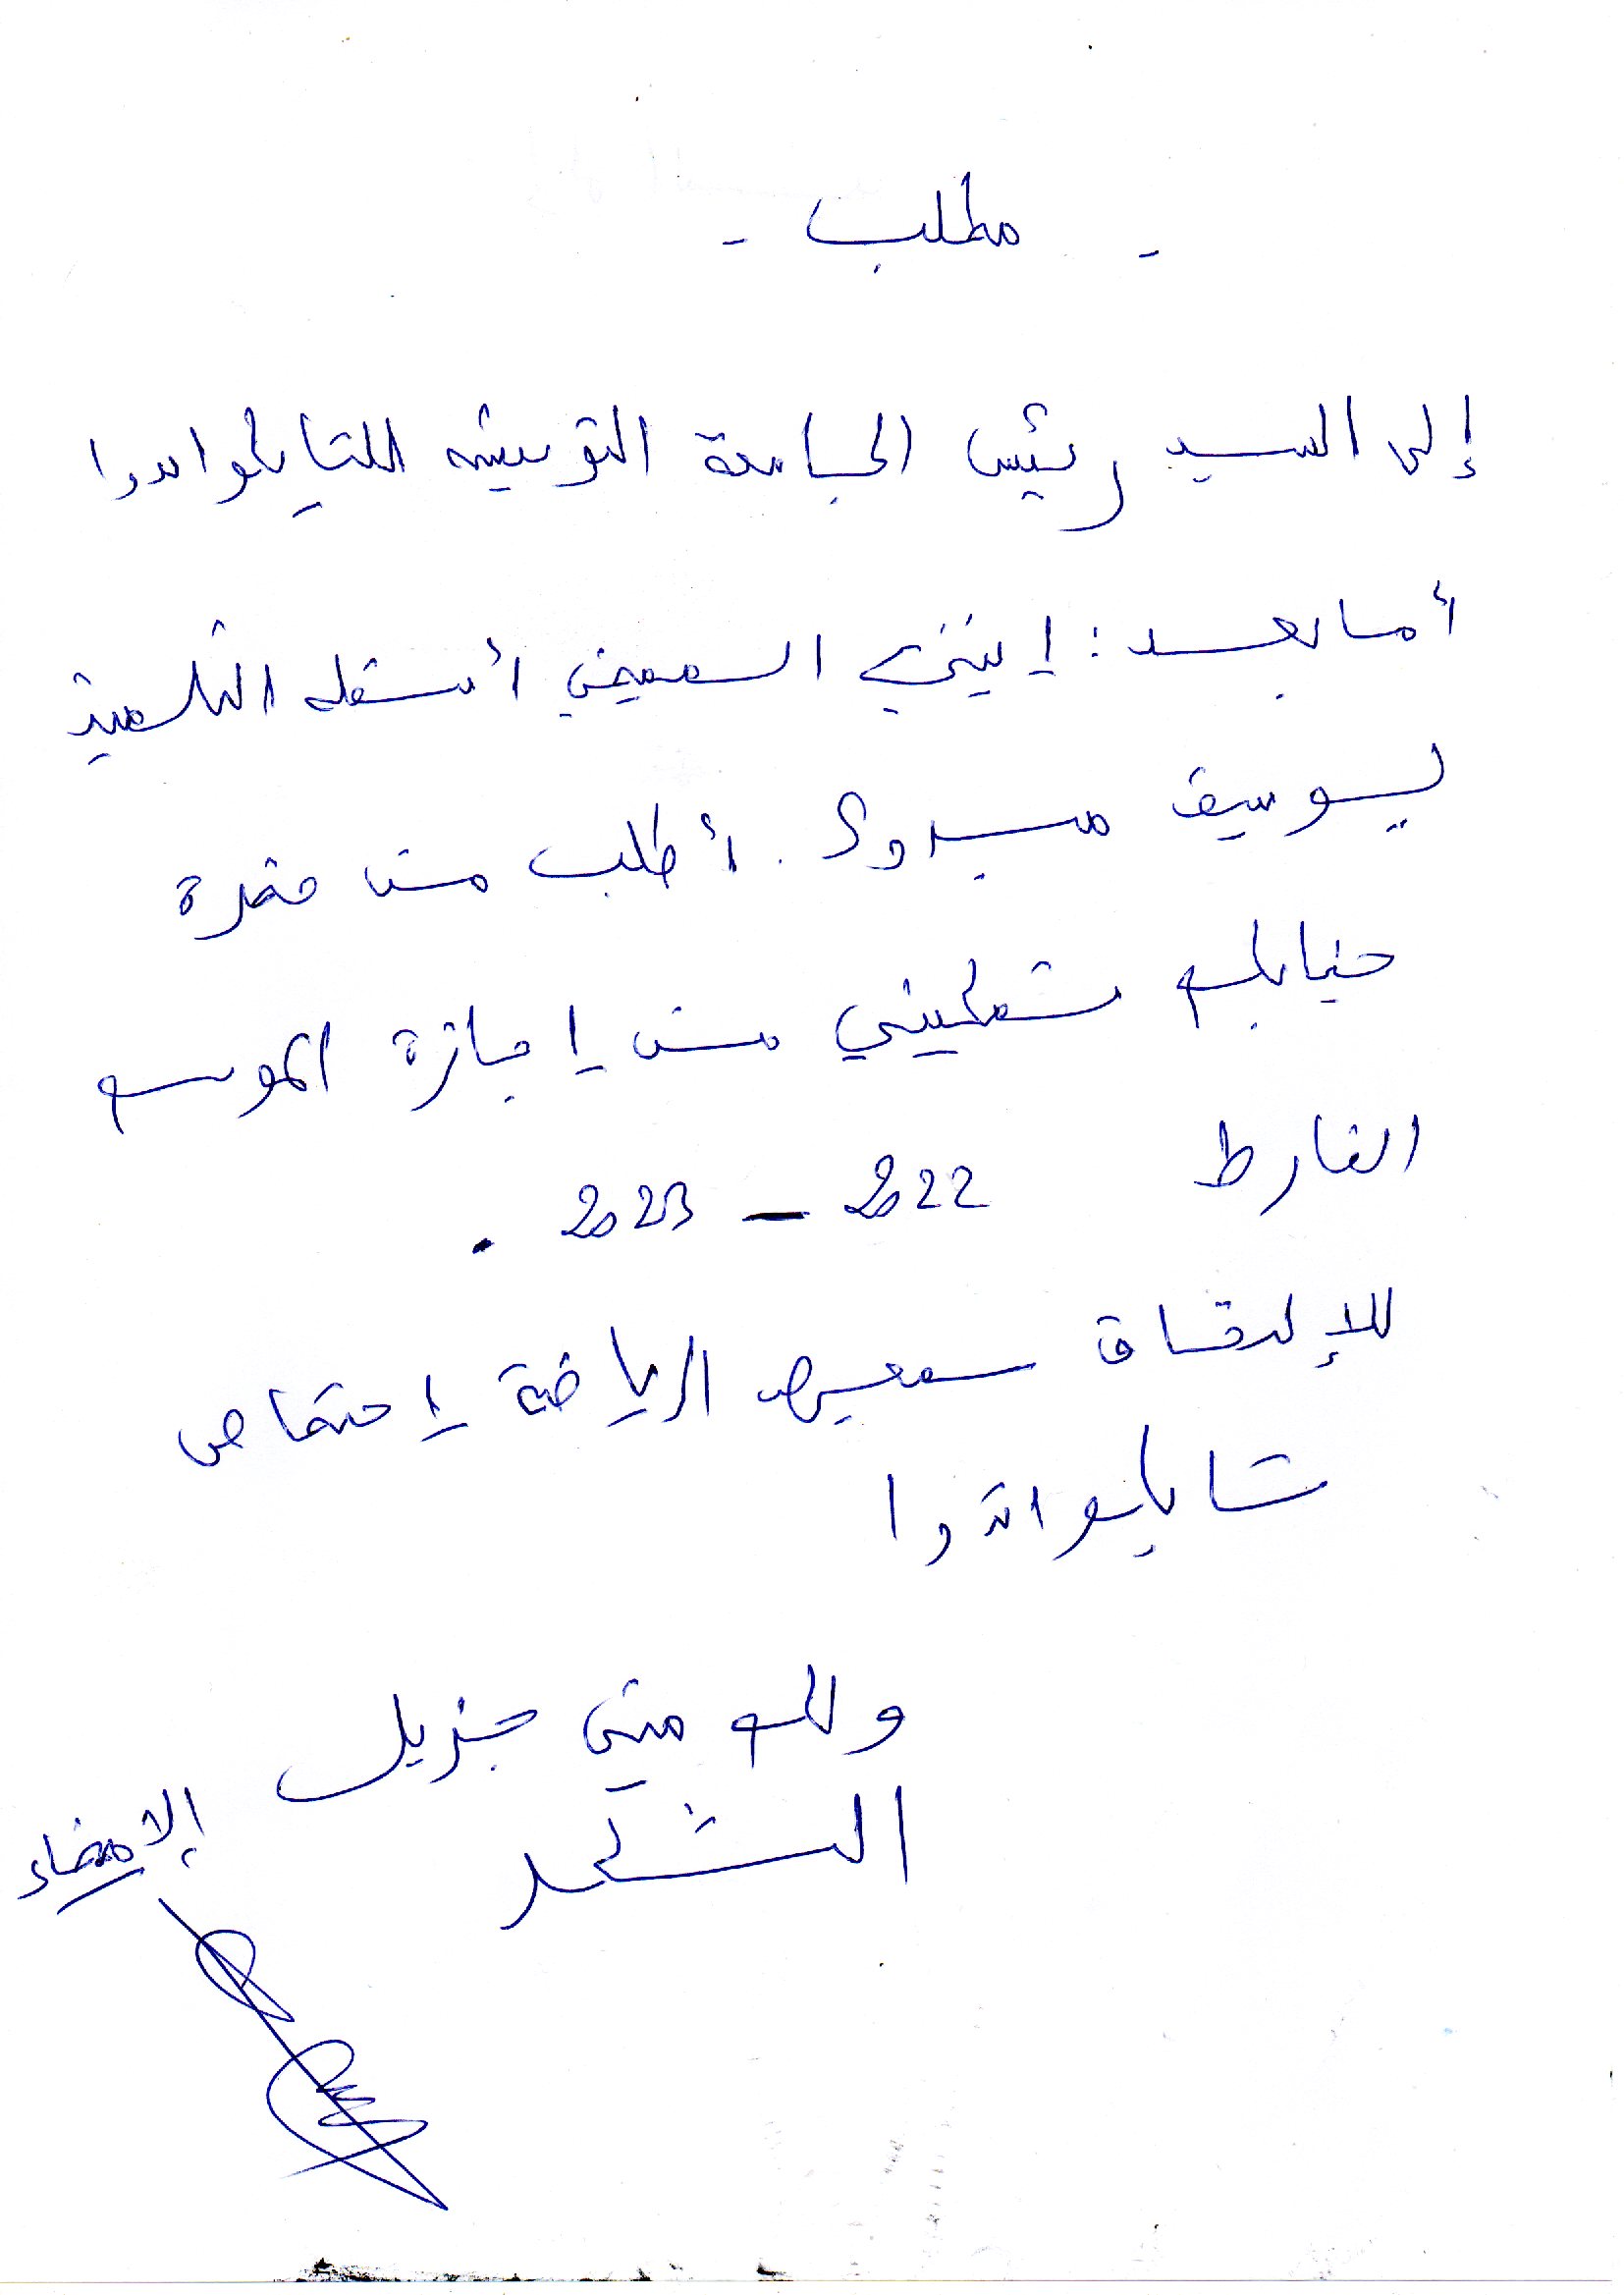 - مطلب -
إلى السيد رئيس الجامعة التونسية للتايكواندوا
أما بعد: إنني الممضي أسفله التلميذ
يوسف أطلب من حضرة
جنابكم تمكيني من إجازة الموسم
الفارط 2022 - 2023 .
للإلتحاق بمعهد الرياضة إختصاص
تايكواندوا
ولكم مني جزيل
الشكر
الإمضاء